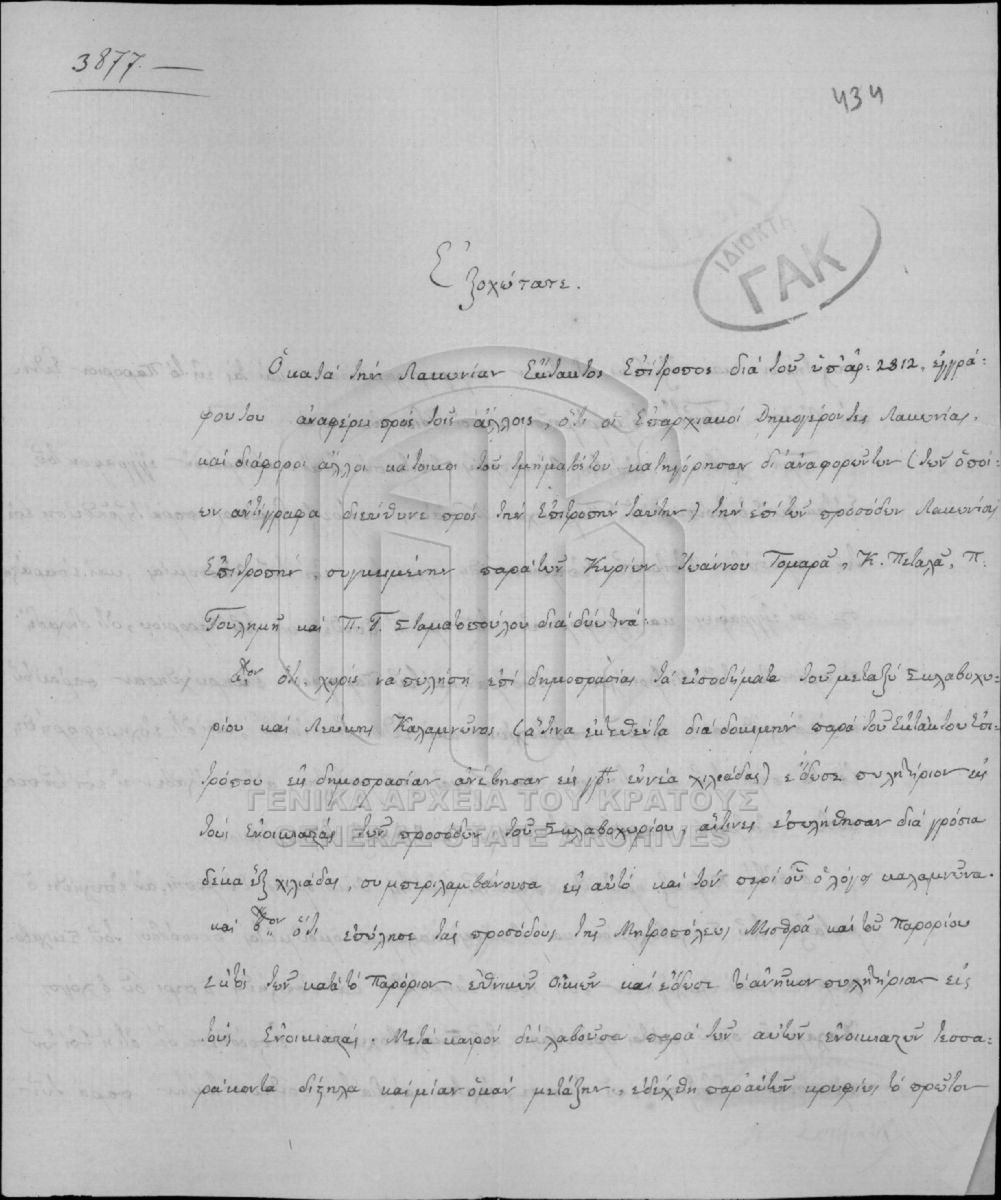 3877.—
434
ΙΔΙΟΚΤΗ
ΓΑΚ
Ἐξοχώτατε.
Ὁ κατὰ τὴν Λακωνίαν Ἔκτακτος Ἐπίτροπος διὰ τοῦ ὑπ' ἀρ: 2812. ἐγγρά:
φου του ἀναφέρει πρὸς τοῖς ἄλλοις, ὅτι οἱ Ἐπαρχιακοὶ Δημογέροντες Λακωνίας,
καὶ διάφοροι ἄλλοι κάτοικοι τοῦ τμήματός του κατηγόρησαν δι' ἀναφορῶν των (τῶν ὁποί:
ων ἀντίγραφα διεύθυνε πρὸς τὴν Ἐπιτροπὴν ταύτην) τὴν ἐπὶ τῶν προσόδων Λακωνίας
Ἐπιτροπὴν, συγκειμένην παρὰ τῶν Κυρίων Ἰωάννου Τομαρᾶ, Κ. Πεταλᾶ, Π.
Γουλημῆ καὶ Π. Γ. Σταματοπούλου διὰ δύω τινά·
αον ὅτι, χωρὶς νὰ πωλήσῃ ἐπὶ δημοπρασίας τὰ εἰσοδήματα τοῦ μεταξὺ Σκλαβοχω:
ρίου καὶ Λεύκης Καλαμιῶνος (ἅτινα ἐκτεθέντα διὰ δοκιμὴν παρὰ τοῦ Ἐκτάκτου Ἐπι:
τρόπου εἰς δημοπρασίαν ἀνέβησαν εἰς γρ: ἐννέα χιλιάδας) ἔδωσε πωλητήριον εἰς
τοὺς Ἐνοικιαστὰς τῶν προσόδων τοῦ Σκλαβοχωρίου, αἵτινες ἐπωλήθησαν διὰ γρόσια
δέκα ἓξ χιλιάδας, συμπεριλαμβάνουσα εἰς αὐτὸ καὶ τὸν περὶ οὗ ὁ λόγος καλαμιῶνα.
καὶ βον ὅτι ἐπώλησε τὰς προσόδους τῆς Μητροπόλεως Μισθρᾶ καὶ τοῦ Παρορίου
ἐκτὸς τῶν κατὰ τὸ Παρόριον ἐθνικῶν οἴκων καὶ ἔδωσε τὸ ἀνῆκον πωλητήριον εἰς
τοὺς Ἐνοικιαστάς. Μετὰ καιρὸν δὲ λαβοῦσα παρὰ τῶν αὐτῶν ἐνοικιαστῶν τεσσα:
ράκοντα δίστηλα καὶ μίαν ὀκὰν μετάξην, ἐδέχθη παρ' αὐτῶν κρυφίως τὸ πρῶτον
ΓΕΝΙΚΑ ΑΡΧΕΙΑ ΤΟΥ ΚΡΑΤΟΥΣ
GENERAL STATE ARCHIVES